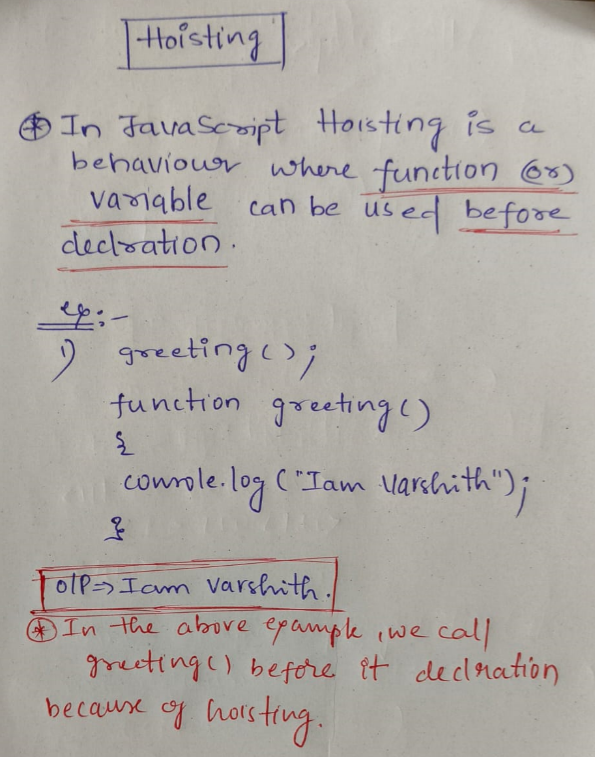 Hoisting
* In JavaScript Hoisting is a
behaviour where function (or)
variable can be used before
declration.
ex:-
1) greeting();
function greeting()
{
console.log ("Iam Varshith");
}
O/P=> Iam varshith.
* In the above example, we call
greeting() before it declration
because of hoisting.